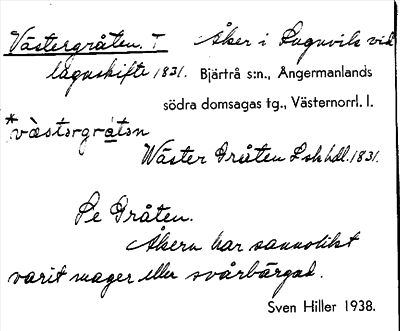 Västergråten. T Åker i Lugnvik vid
lagaskifte 1831. Bjärtrå s:n., Ångermanlands
södra domsagas tg., Västernorrl. l.
*vàstərgrátən
Wäster Gråten Lskhdl. 1831.
Se Gråten.
Åkern har sannolikt
varit mager eller svårbärgad.
Sven Hiller 1938.